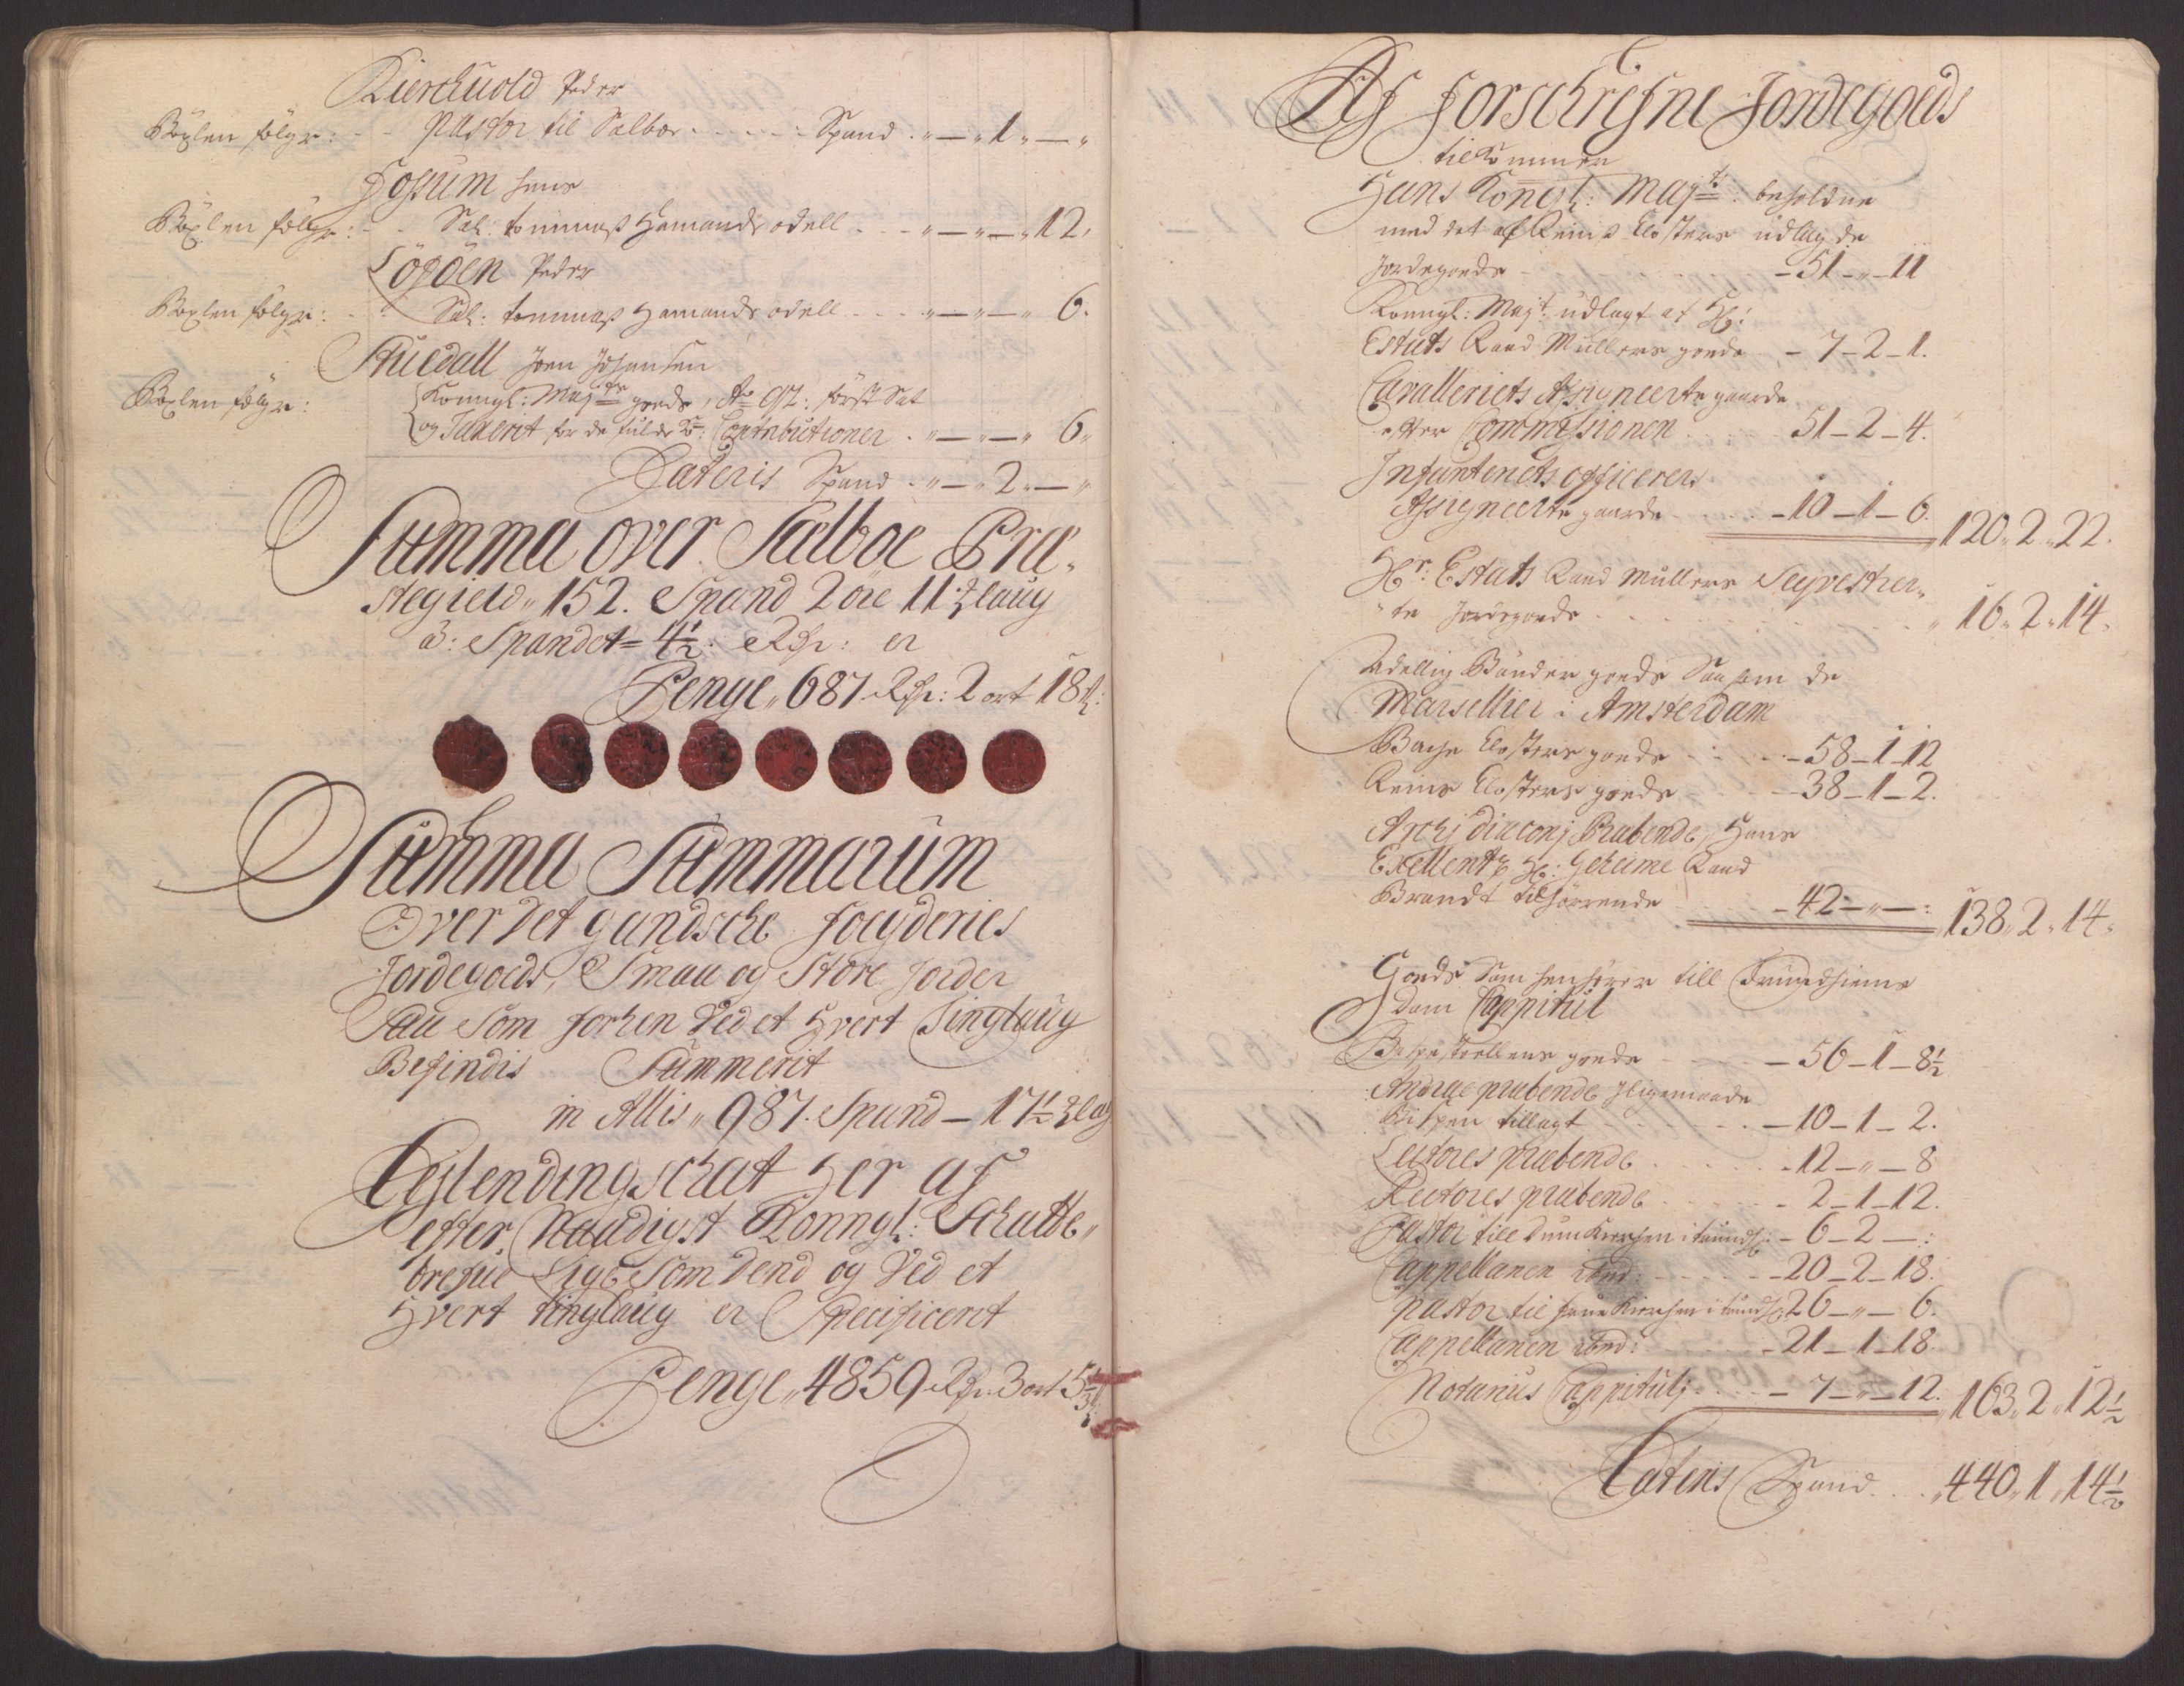 Kierchuold Peder
Böxlen følger: - - Pastor til Selboe . . . . . : Spand . „ — „ 1 „ — „
Hossum Jens
Böxlen følger: - . Sal: Tommas Hamands odell . . . „ — „ — „ 12.
Løgden Peder
Böxlen følger: . . Sal: Tommas Hamands odell . . . . „ — „ — „ 6.
Stuedall Joen Johansen
Böxlen følger: Konngl: Maj:ts goeds, Ao 92: först Sat
og Taxerit for de fulde Contributioner . „ — „ — „ 6„
Lateris Spand . „ — „ 2 „ — „
Summa over Sælboe Præ„
stegield„ 152. Spand 2 öre 11 laug
â: Spandet = 4½: Rdr: er
Penge „ 687 Rdr: 2 ort 18
Summa Summarum
Over det gandsche fogderies
Jordegoeds, Smaa og Store Jorder
Saa som forhen Ved et hvert Tinglaug
Befindis Summerit
in Allis „ 987. Spand — 17½
Leylendingschat her af
efter Naadigst Konngl: Schatte„
brefue Lige Som dend og Ved et
hvert tinglaug er Specificerit
Penge „ 4859 Rdr 3 ort 5
Af forschrefne Jordegoeds
tilkommer
Hans Kongl: Maj:ts: beholdne
med det af Reins Closters udlagde
Jordegoeds - — 51 — „ — 11
Konngl: Majt: udlagt af Hr:
Estats Raad Mullers goeds — 7 — 2 — 1.
Cavalleriets Assigneerte gaarde
efter Commissionen . . . . 51 — 2 — 4.
Infanteriets officerers
Assigneerte gaarde . . . . — 10 — 1 — 6. „ 120 „ 2 „ 22.
Hr: Estats Raad Mullers Seqvestrer„
„te Jordegoeds . . . . . . . „ 16 „ 2 „ 14.
Adellig Bönder goeds Saasom de
Marsellier i Amsterdam
Bache Closters goeds . . . — 58 — 1 — 12
Reins Closters goeds . . . — 38 — 1 — 2.
Archi Diaconj Præbende, Hans
Exellentz Hr: Geheime Raad
Brandt tilhörrende . . . — 42 — „ — : „ 138 „ 2 „ 14„
Goeds Som henhörer till Trundhiems
Dom Cappitul
Bispestoellens goeds . . . — 56 — 1 — 8½
Andræ præbende ligemaade
Bispen tillagt . . . . . — 10 — 1 — 2.
Lectores præbende . . . . - 12 — „ — 8
Rectores præbende . . . . - 2 — 1 — 12.
Pastor till Dom Kierchen i Trundh: — 6 — 2 — :
Cappellanen ibid: . . . . — 20 — 2 — 18.
Pastor til frue Kierchen i trundh: 26 — „ — 6.
Cappellanen ibid: . . . . — 21 — 1 — 18.
Notarius Cappitulj . . . — 7 — „ — 12. „ 163 „ 2 „ 12½
Lateris Spand . . . „ 440 „ 1 „ 14½